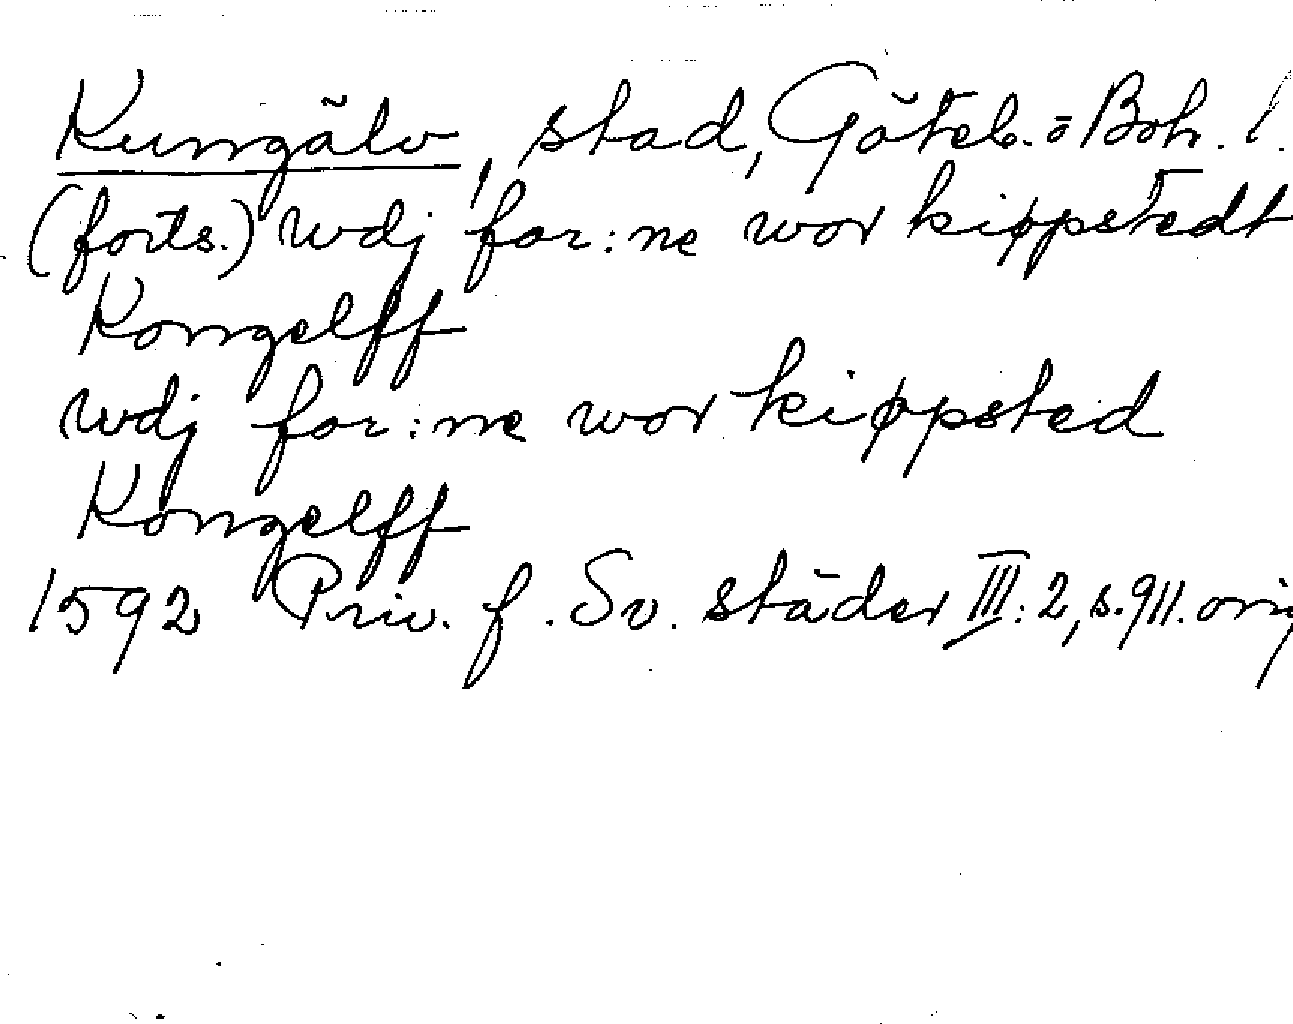 Kungälv, stad, Göteb. o Boh. l.
(forts.) wdj for:ne wor kiøpstedt
Kongelff
wdj for:ne wor kiøpsted
Kongelff
1592 Priv. f. Sv. städer III:2, s. 911. orig